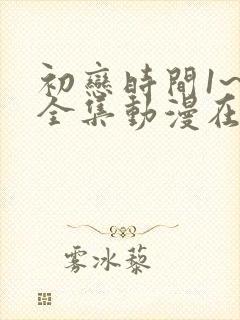 初戀時間1~
全集動漫在
雾冰藜